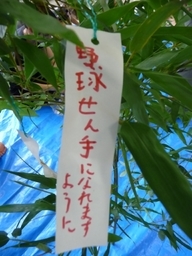 野球せん手になれます
ように